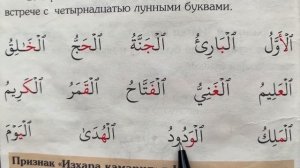 встрече с четырнадцатью лунными буквами.
ٱلْأَوَّلُ ٱلْبَارِئُ ٱلْجَنَّةُ ٱلْحَجُّ ٱلْخَالِقُ
ٱلْعَلِيمُ ٱلْغَنِيُّ ٱلْفَتَّاحُ ٱلْقَمَرُ ٱلْكَرِيمُ
ٱلْمَلِكُ ٱلْوَدُودُ ٱلْهُدَىٰ ٱلْيَوْمَ
Признак «Изхара